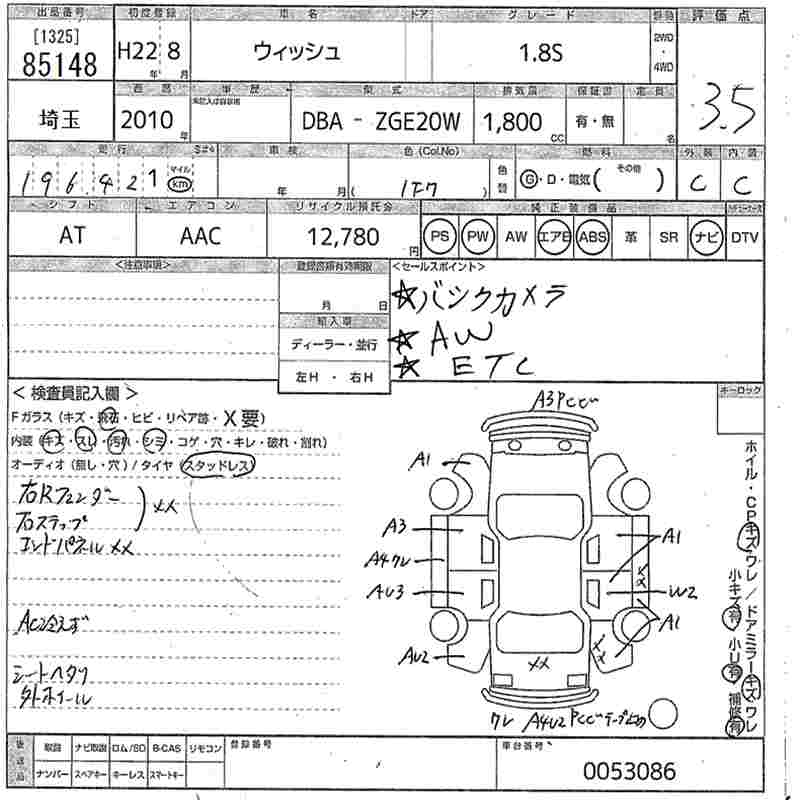 出品番号 初度登録 車名 ドア グレード 評価点
[1325]
85148 H22年 8月 ウィッシュ 1.8S 2WD・4WD 3.5
車歴 型式 排気量 保証書 定員
埼玉 2010年 DBA - ZGE20W 1,800CC 有・無 名
走行 車検 色(Col.No) 色替 燃料 外装 内装
196,421 マイル km 年 月 ( 1F7 ) G・D・電気( その他 ) C C
シフト エアコン リサイクル預託金 純正装備品
AT AAC 12,780円 PS PW AW エアB ABS 革 SR ナビ DTV
<注意事項> <セールスポイント>
月 日 ☆バックカメラ
輸入車 ☆AW
ディーラー・並行 ☆ETC
左H・右H
キーロック
< 検査員記入欄 >
Fガラス (キズ・飛石・ヒビ・リペア跡・X要)
内装 (キズ・スレ・汚れ・シミ・コゲ・穴・キレ・破れ・割れ)
オーディオ (無し・穴) / タイヤ (スタッドレス)
右Rフェンダー
右ステップ ) XX
エンドパネル XX
AC冷えず
シートヘタリ
外ホイール
A3
A1
A3 A1
A4ワレ XX
AU3 W2
A1
AU2 XX XX
ワレ A4U2 テープ止め
ホイール・CPキズワレ / ドアミラーキズワレ
小キズ有 小U有 補修有
後送品 取説 ナビ取説 ロム/SD B-CAS リモコン 登録番号 車台番号
ナンバー スペアキー キーレス スマートキー 0053086